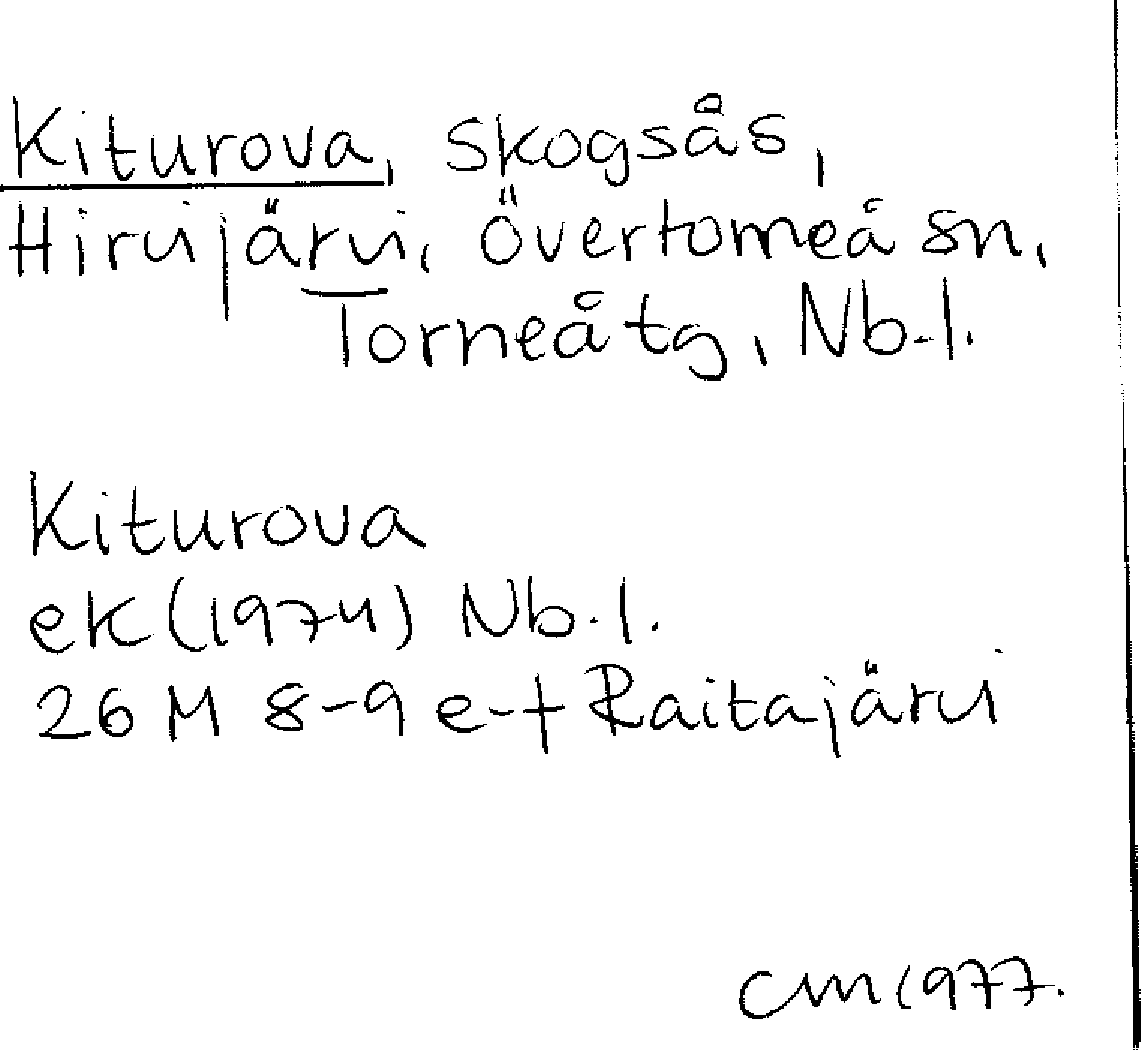 Kiturova, skogsås,
Hirvijärvi, Övertorneå sn,
Torneå tg, Nb.l.
Kiturova
ek (1974) Nb.l.
26 M 8-9 e-f Raitajärvi
CM 1977.